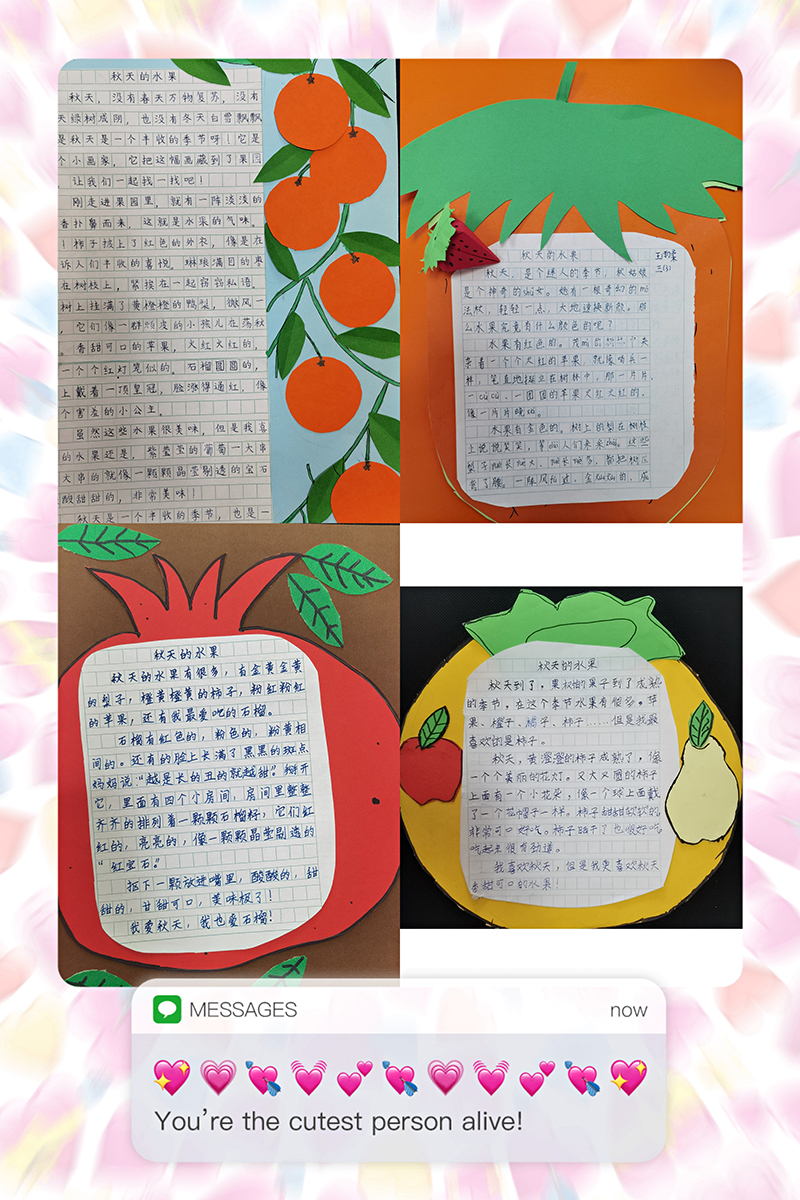 秋天的水果
秋天，没有春天万物复苏，没有
天绿树成阴，也没有冬天白雪飘飘
是秋天是一个丰收的季节呀！它是
个小画家，它把这幅画藏到了果园
，让我们一起找一找吧！
刚走进果园里，就有一阵淡淡的
香扑鼻而来，这就是水果的气味。
！柿子披上了红色的外衣，像是在
诉人们丰收的喜悦。琳琅满目的枣
在树枝上，紧挨在一起窃窃私语。
树上挂满了黄橙橙的鸭梨，微风一
，它们像一群顽皮的小孩儿在荡秋
。香甜可口的苹果，火红火红的，
一个个红灯笼似的。石榴圆圆的，
上戴着一顶皇冠，脸涨得通红，像
个害羞的小公主。
虽然这些水果很美味，但是我喜
的水果还是，紫莹莹的葡萄一大串
大串的就像一颗颗晶莹剔透的宝石
酸甜甜的，非常美味！
秋天是一个丰收的季节，也是一
秋天的水果
三(3)
秋天，是个迷人的季节，秋姑娘
是个神奇的shǐ女。她有一根奇幻的mó
法杖，轻轻一点，大地连换新款。那
么水果究竟有什么颜色的呢？
水果有红色的。
着一个个火红的苹果，就像哨兵一
样，笔直地挺立在树林中，那一片片
一cù cù，一团团的苹果火红火红的，
像一片片晚
水果有金色的。树上的梨在树枝
上说说笑笑，等人们来采
梨子
了腰。一阵风拂过，金
秋天的水果
秋天的水果有很多，有金黄金黄
的梨子，橙黄橙黄的柿子，粉红粉红
的苹果，还有我最爱吃的石榴。
石榴有红色的，粉色的，粉黄相
间的。还有的脸上长满了黑黑的斑点
妈妈说“越是长的丑的就越甜”。掰开
它，里面有四个小房间，房间里整整
齐齐的排列着一颗颗石榴籽，它们红
红的，亮亮的，像一颗颗晶莹剔透的
“红宝石”
抠下一颗放进嘴里，酸酸的，甜
甜的，甘甜可口，美味极了！
我爱秋天，我也爱石榴！
秋天的水果
秋天到了，果树的果子到了成熟
的季节，在这个季节水果有很多。苹
果、橙子、橘子、柿子……但是我最
喜欢的是柿子。
秋天，黄澄澄的柿子成熟了，像
一个个美丽的花灯。又大又圆的柿子
上面有一个小花朵，像一个球上面戴
了一个花帽子一样。柿子甜甜软软的
非常可口好吃。柿子晒干了也很好吃
吃起来很有劲道。
我喜欢秋天，但是我更喜欢秋天
香甜可口的水果！
MESSAGES
now
You're the cutest person alive!